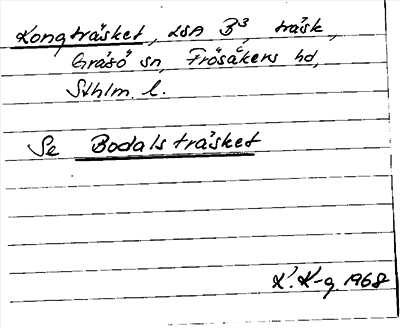 Kongträsket, LSA B³, träsk,
Gräsö sn, Frösåkers hd,
Sthlm. l.
Se Bodalsträsket
K-g. 1968